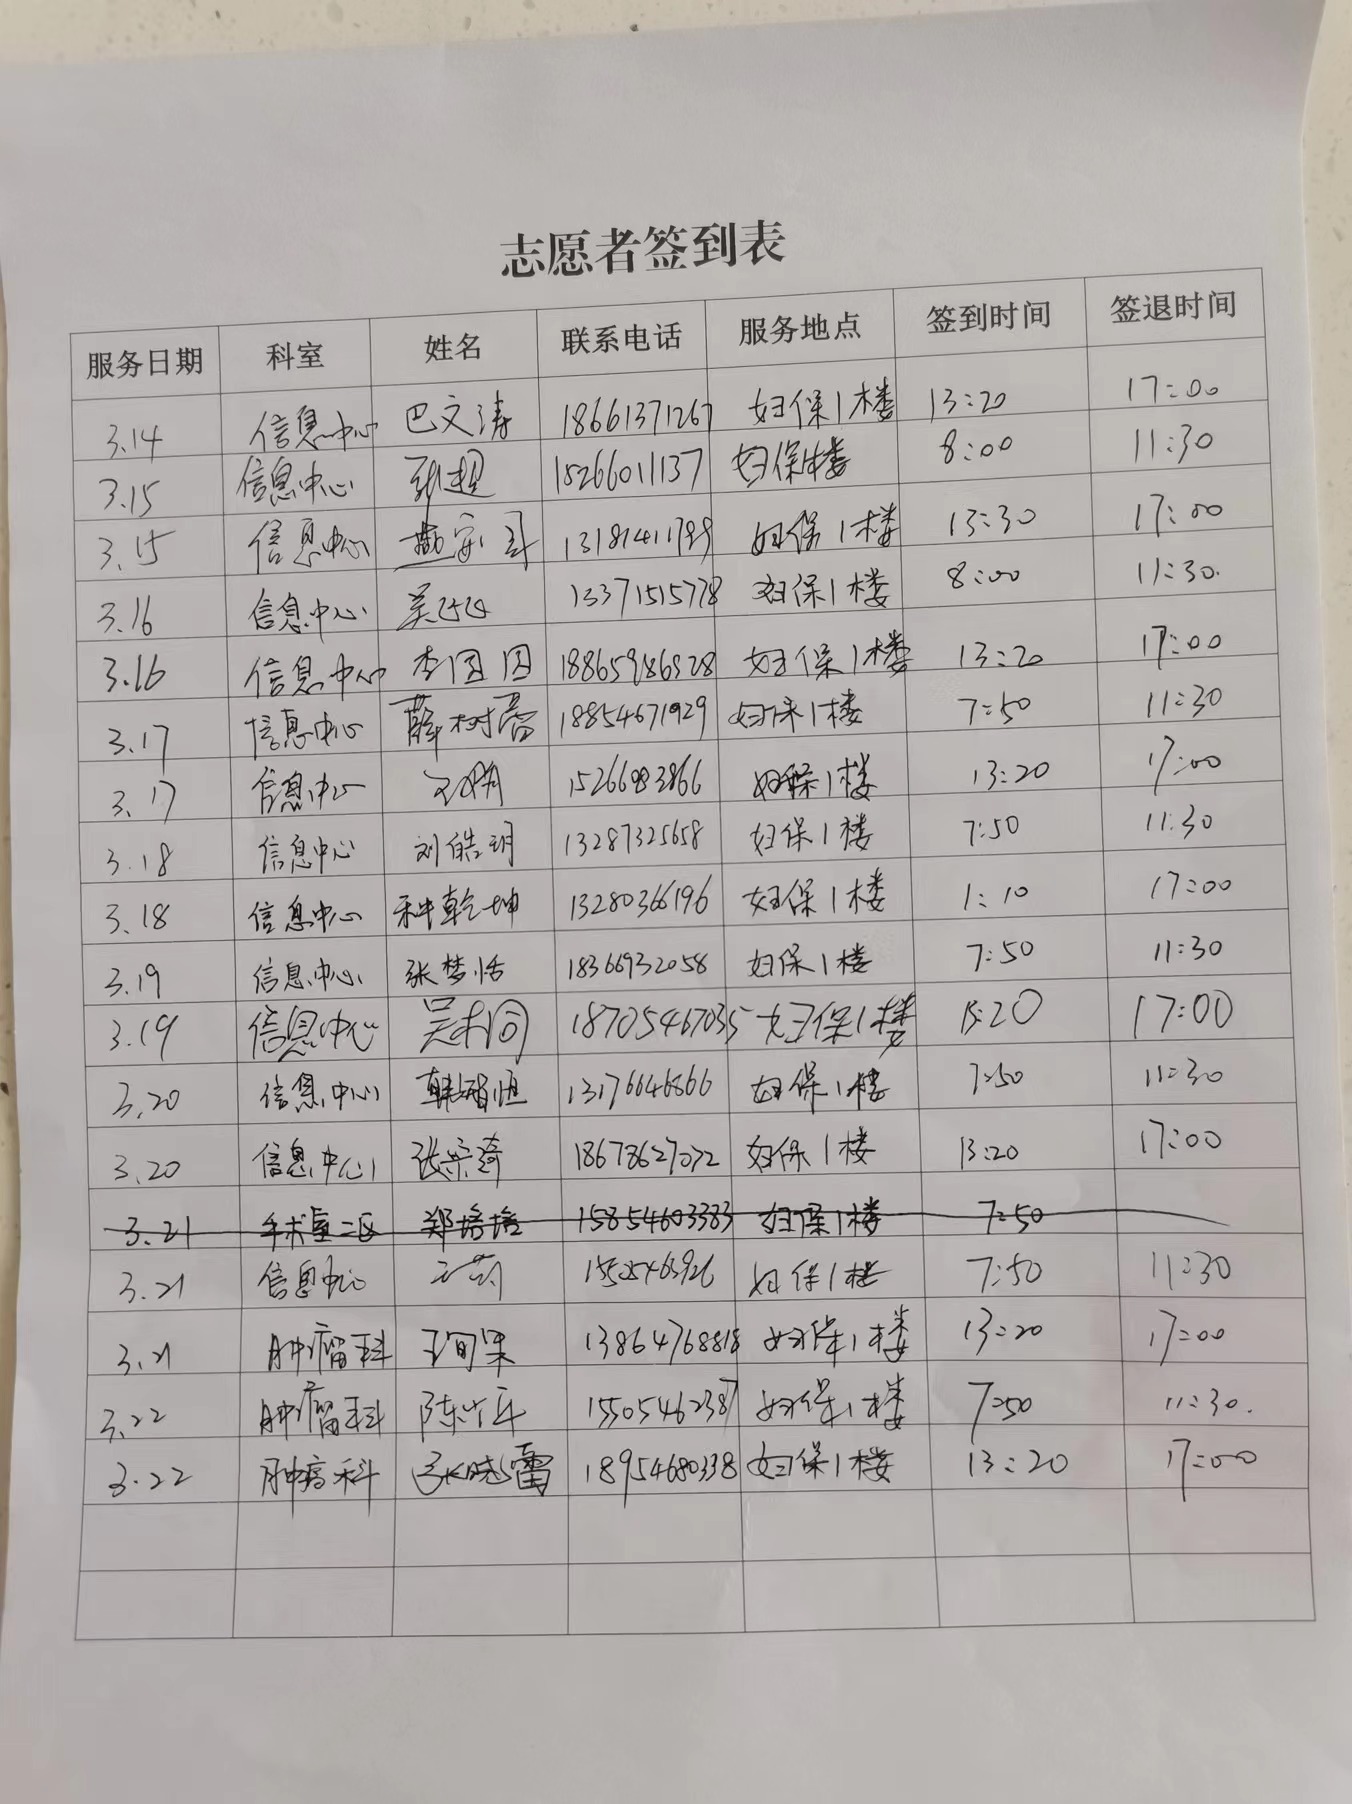 志愿者签到表
服务日期 科室 姓名 联系电话 服务地点 签到时间 签退时间
3.14 信息中心 巴文涛 18661371267 妇保1楼 13:20 17:00
3.15 信息中心 张超 15266011137 妇保1楼 8:00 11:30
3.15 信息中心 13181411799 妇保1楼 13:30 17:00
3.16 信息中心 13371515778 妇保1楼 8:00 11:30.
3.16 信息中心 李囡囡 18865986528 妇保1楼 13:20 17:00
3.17 信息中心 薛树蓉 18854671929 妇保1楼 7:50 11:30
3.17 信息中心 妇保1楼 13:20 17:00
3.18 信息中心 刘皓玥 13287325658 妇保1楼 7:50 11:30
3.18 信息中心 种乾坤 13280366196 妇保1楼 1:10 17:00
3.19 信息中心 张梦恬 18366932058 妇保1楼 7:50 11:30
3.19 信息中心 18705467035 妇保1楼 17:00
3.20 信息中心 13176646866 妇保1楼 7:50 11:30
3.20 信息中心 张宗琦 18678627072 妇保1楼 13:20 17:00
3.21 手术室二区 郑培培 15854603383 妇保1楼 7:50
3.21 信息中心 妇保1楼 7:50 11:30
3.21 肿瘤科 13864768818 妇保1楼 13:20 17:00
3.22 肿瘤科 15505462387 妇保1楼 7:50 11:30.
3.22 肿瘤科 18954680338 妇保1楼 13:20 17:00